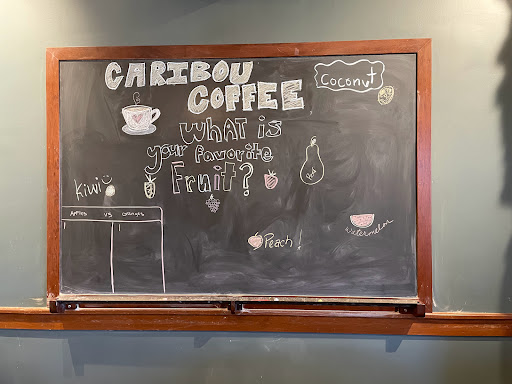 CARIBOU
COFFEE
Coconut
What is
your favorite
Fruit?
Kiwi
Apples vs Oranges
Peach!
Watermelon